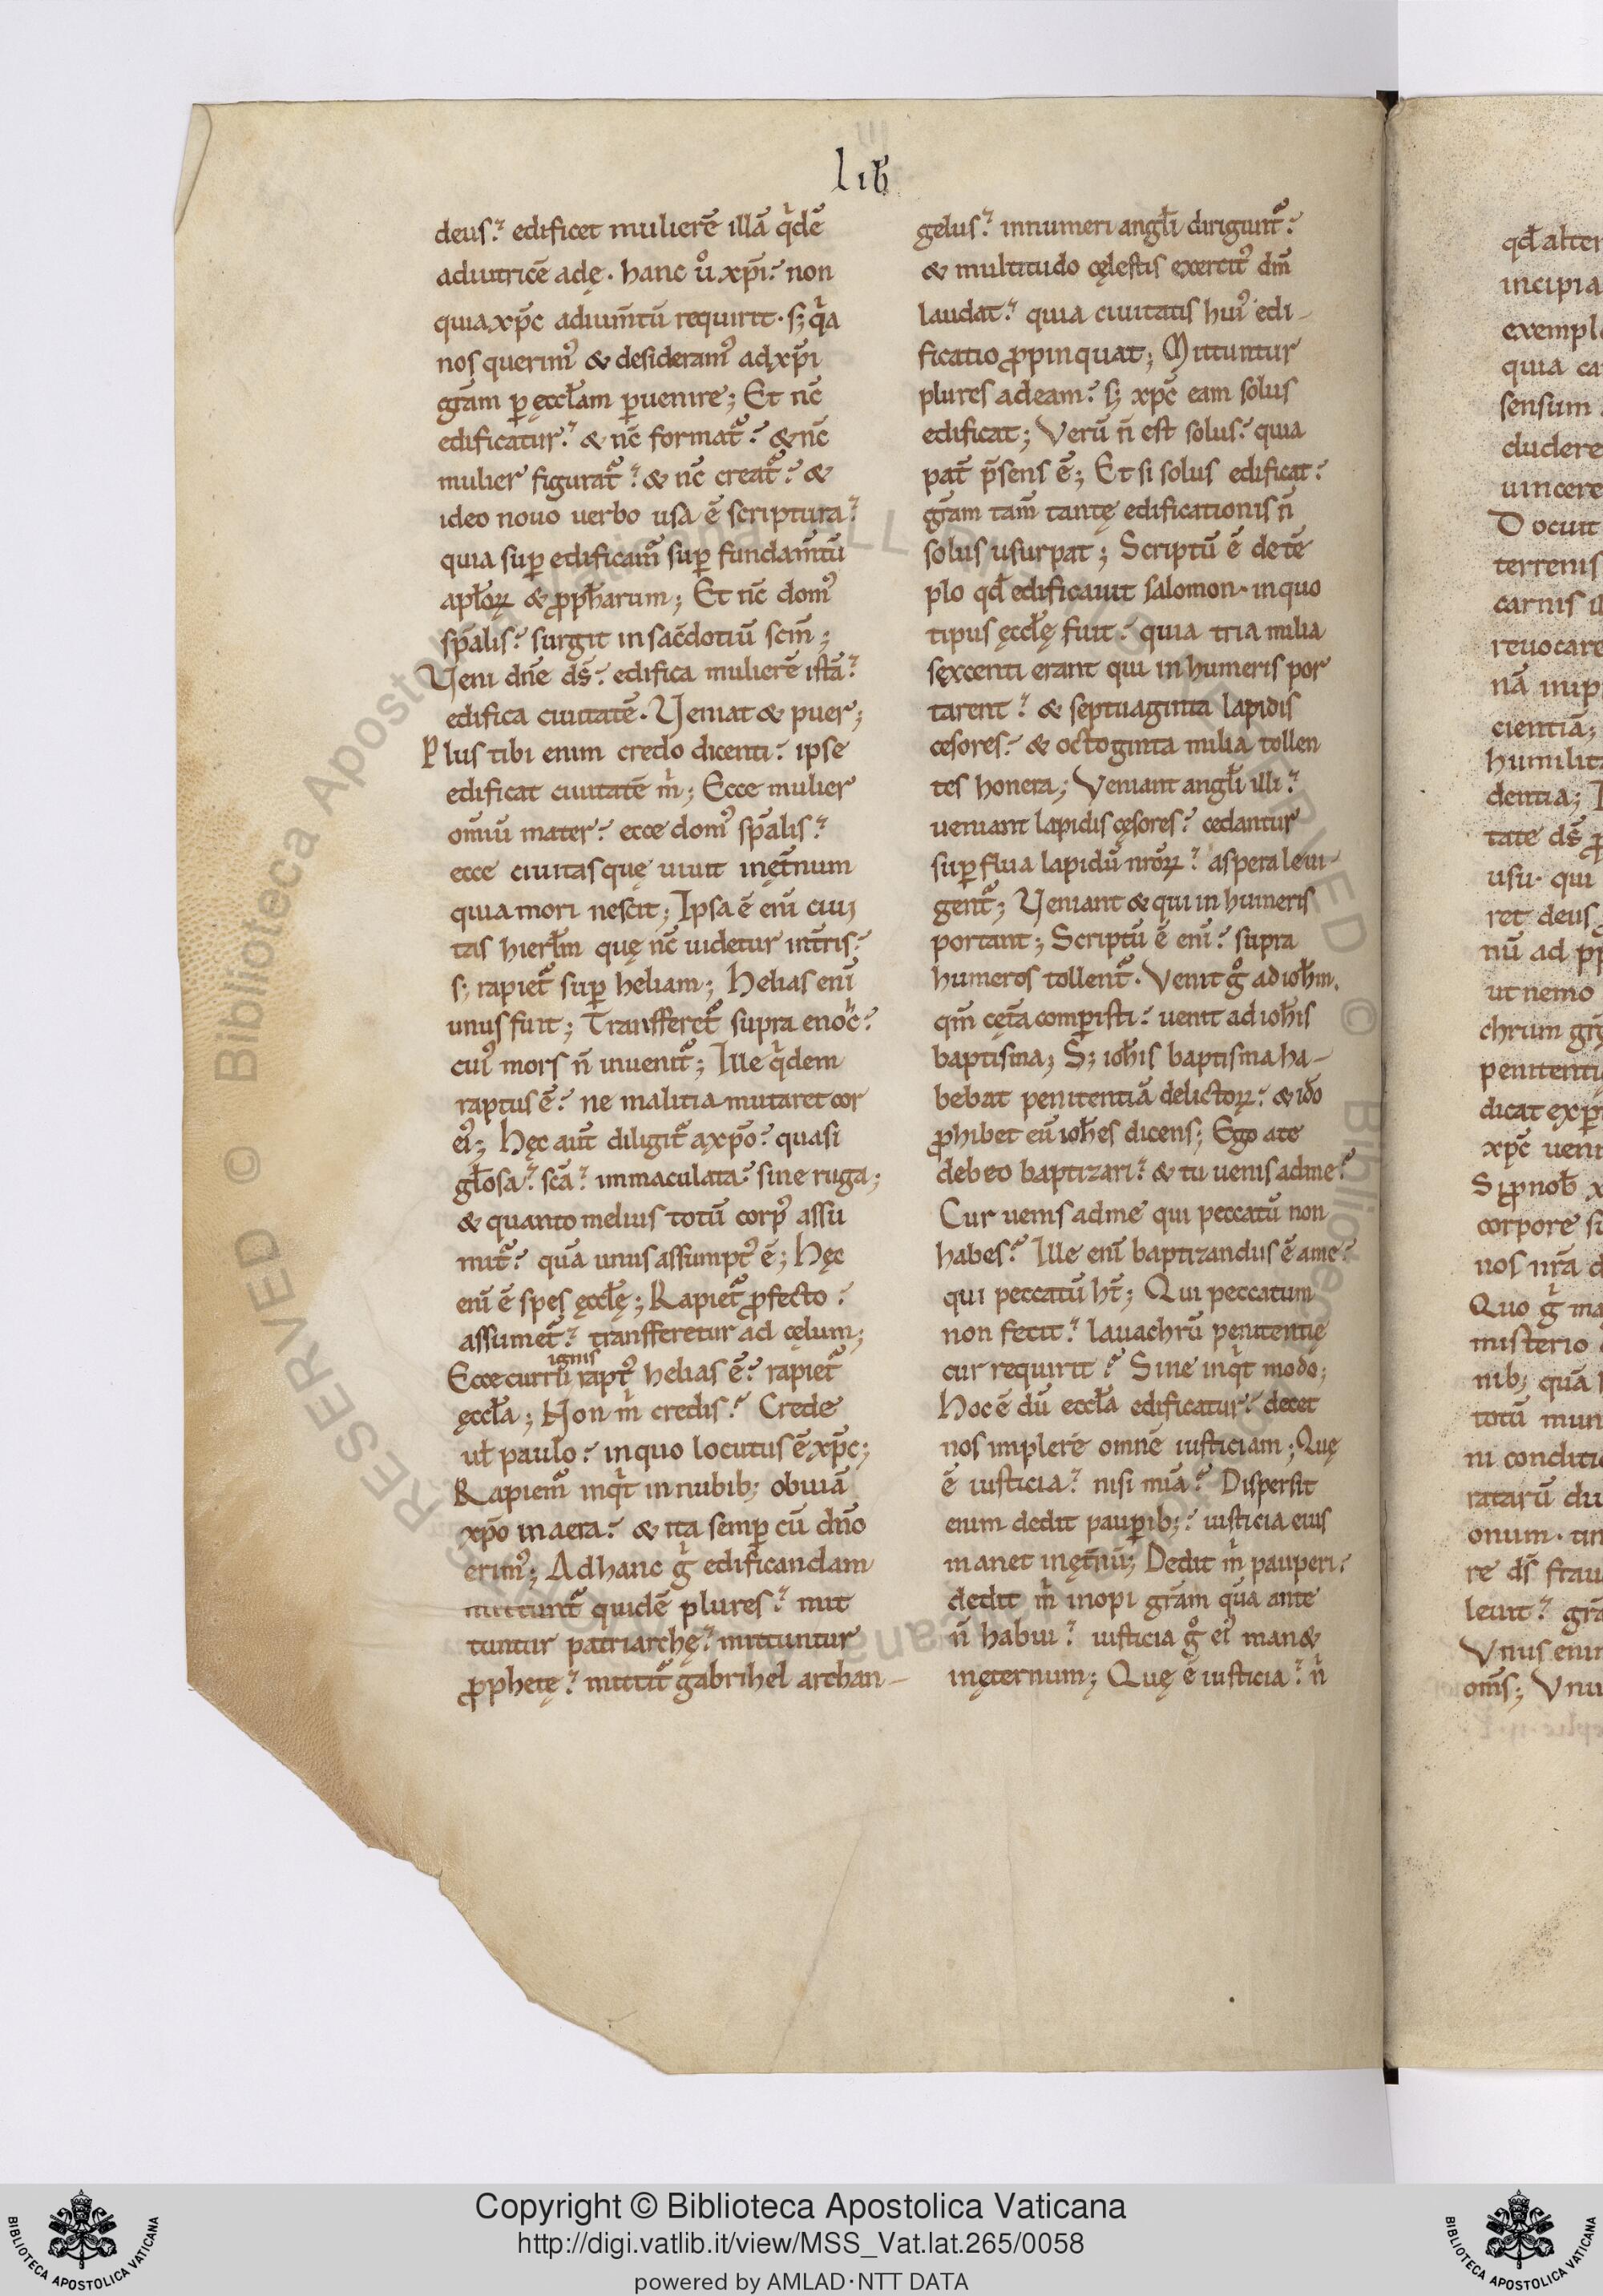 lib
deus. edificet mulierē illā q̇dē
adiutricē adę. hanc ů xp̄i. non
quia xp̄c adium̄tū requirit. s; q̇a
nos querim᾽ & desideram᾽ ad xp̄i
gr̄am ꝑ ęccl̄am ꝑuenire; Et nc̄
edificatur. & nc̄ format᷑. & nc̄
mulier figurat᷑. & nc̄ creat᷑. &
ideo nouo uerbo usa ē scriptura.
quia suꝑ edificam᷑ suꝑ fundam̄tū
apl̄oꝝ & ꝓph̄arum; Et nc̄ dom᾽
sp̄alis. surgit in sac̄dotiū scm̄;
Veni dn̄e ds̄. edifica mulierē istā.
edifica ciuitatē. Veniat & puer;
Plus tibi enim credo dicenti. ipse
edificat ciuitatē m̊; Ecce mulier
om̄iū mater. ecce dom᾽ sp̄alis.
ecce ciuitas quę uiuit inęt̄num
quia mori nescit; Ipsa ē eni᷑ ciui
tas hierl̄m quę nc̄ uidetur int̄ris.
s; rapiet᷑ suꝑ heliam; Helias eni᷑
unus fuit; Transferet᷑ supra enoc̊.
cui᾽ mors n̄ inuenit᷑; Ille q̇dem
raptus ē. ne malitia mutaret cor
ei᾽; Hęc aut̄ diligit᷑ a xp̄o. quasi
gl̄osa. scā. immaculata. sine ruga;
& quanto melius totū corp᾽ assu
mit᷑. quā unus assumpt᾽ ē; Hęc
eni᷑ ē spes ęccl̄ę; Rapiet᷑ ꝓfecto.
assumet᷑. transferetur ad cęlum;
ignis
Ecce curru rapt᾽ helias ē. rapiet᷑
ęccl̄a; Non m̊ credis. Crede
ul̄ paulo. in quo locutus ē xp̄c;
Rapiem᷑ inq̇t in nubib; obuiā
xp̄o in aera. & ita semꝑ cū dn̄o
erim᾽; Ad hanc g̊ edificandam
mittunt᷑ quidē plures. mit
tuntur patriarchę. mittuntur
ꝓphetę. mittit᷑ gabrihel archan-
gelus. innumeri angl̄i dirigunt᷑.
& multitudo cęlestis exercit᾽ dm̄
laudat. quia ciuitatis hui᾽ edi-
ficatio ꝓpinquat; Mittuntur
plures ad eam. s; xp̄c eam solus
edificat; Verū n̄ est solus. quia
pat̄ p̄sens ē; Et si solus edificat.
gr̄am tam̄ tantę edificationis n̄
solus usurpat; Scriptū ē de tē
plo qd̄ edificauit salomon. in quo
tipus ęccl̄ę fuit. quia tria milia
sexcenti erant qui in humeris por
tarent. & septuaginta lapidis
cesores. & octoginta milia tollen
tes honera; Veniant angl̄i illi.
ueniant lapidis cęsores. cedantur
suꝑflua lapidū nr̄oꝝ. aspera leui-
gent᷑; Veniant & qui in humeris
portant; Scriptū ē eni᷑. supra
humeros tollent᷑. Venit g̊ ad ioh̄m.
qm̄ cęt̄a comꝑisti. uenit ad ioh̄is
baptisma; S; ioh̄is baptisma ha-
bebat penitentiā delictoꝝ. & iđo
ꝓhibet eū ioh̄es dicens; Ego a te
debeo baptizari. & tu uenis ad me.
Cur uenis ad me qui peccatū non
habes. Ille eni᷑ baptizandus ē a me.
qui peccatū ht̄; Qui peccatum
non fecit. lauachrū penitentię
cur requirit. Sine inq̇t modo;
Hoc ē dū eccl̄a edificatur. decet
nos implere omnē iusticiam; Quę
ē iusticia. nisi mi᷑a. Dispersit
enim dedit pauꝑib;. iusticia eius
manet inęt̄nū; Dedit m̊ pauperi.
dedit m̊ inopi gr̄am quā ante
n̄ habui. iusticia g̊ ei᾽ man&
inęternum; Quę ē iusticia. n̊
qd̄ alter
incipia
exempl
quia ca
sensum
cludere
uincere
Docuit
terrenis
carnis
reuocare
nā
cientiā;
humilit
dentia;
tate ds̄
usu. qui
ret deus
nū ad
ut nemo
chrum
penitenti
dicat
xp̄c ueni
Si ꝓ nob̄
corpore
nos nr̄a
Quo g̊
misterio
nib; quā
totū mun
ni conditi
ratarū du
onum.
re ds̄
leuit.
Vnus enim
om̄s; Vnu
Copyright © Biblioteca Apostolica Vaticana
http://digi.vatlib.it/view/MSS_Vat.lat.265/0058
powered by AMLAD·NTT DATA
BIBLIOTECA APOSTOLICA VATICANA
BIBLIOTECA APOSTOLICA VATICANA